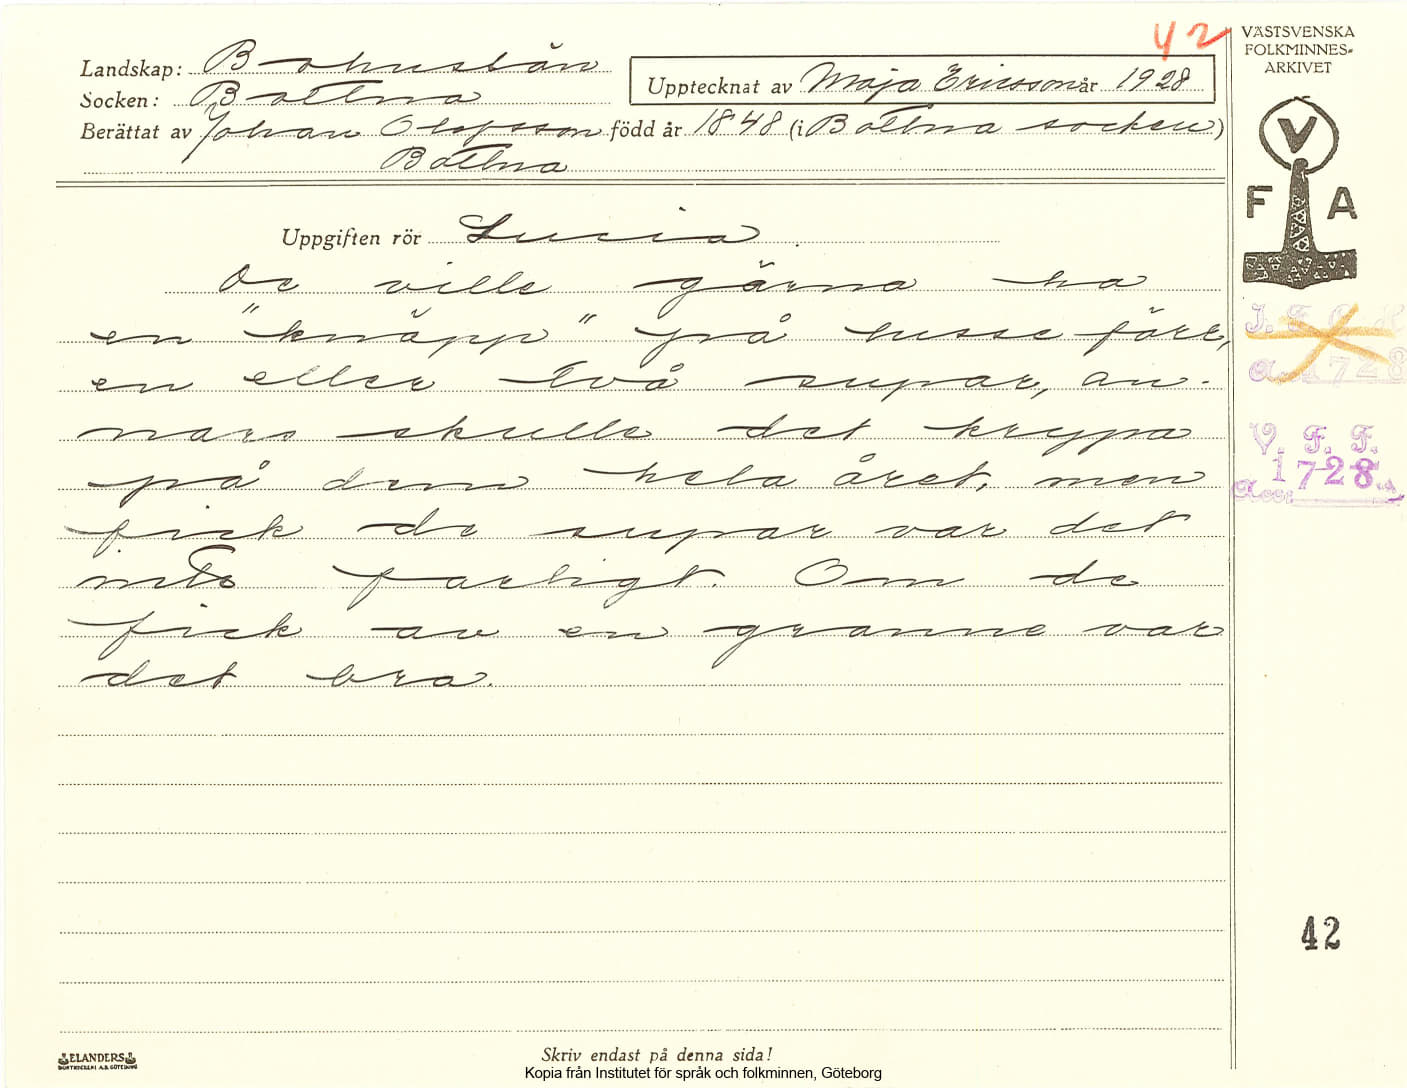 42
VÄSTSVENSKA
FOLKMINNES-
ARKIVET
Landskap: Bohuslän
Socken: Bottna
Upptecknat av Maja Ericsson år 1928
Berättat av Johan Olofsson född år 1848 (i Bottna socken)
Bottna
V
F A
Uppgiften rör Lucia.
De ville gärna ha
en "knäpp" på lusse förr,
en eller två supar, an-
nars skulle det krypa
på dem hela året, men
fick de supar var det
inte farligt. Om de
fick av en granne var
det bra.
V. F. F.
acc: 1728
42
ELANDERS
Skriv endast på denna sida!
Kopia från Institutet för språk och folkminnen, Göteborg